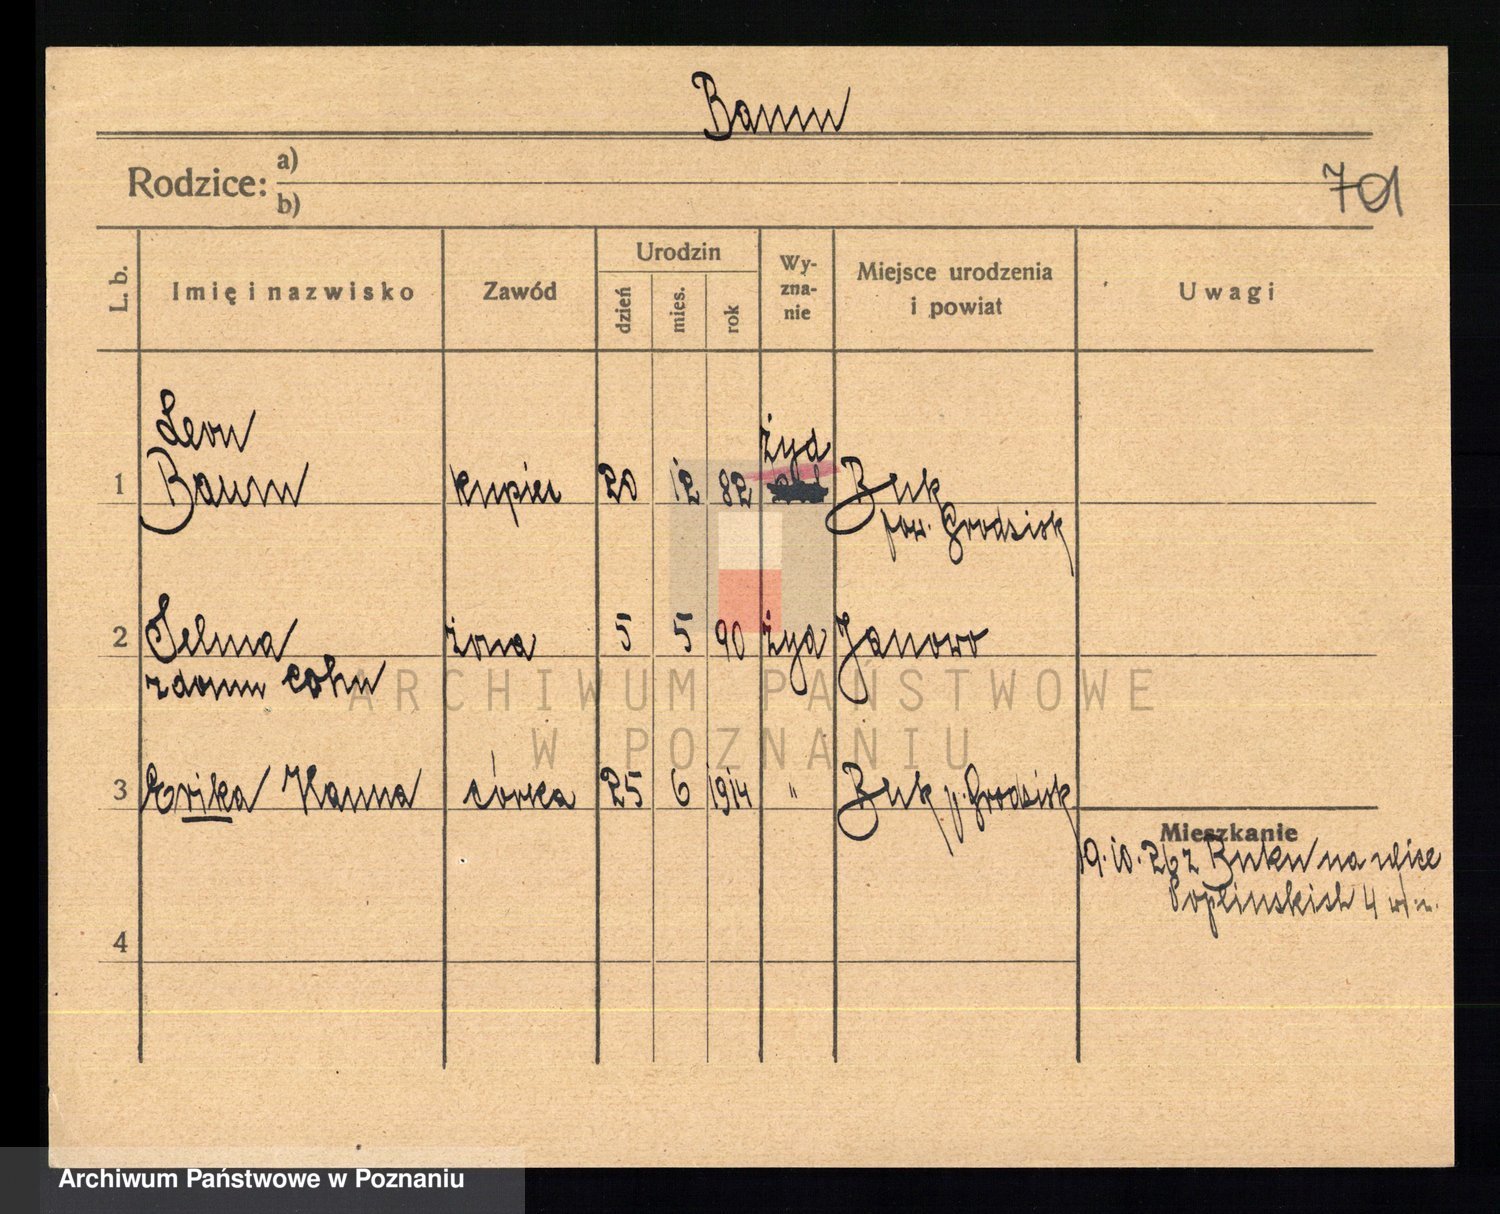 Baum
Rodzice: a)
b)
701
L. b.
Imię i nazwisko
Zawód
Urodzin
dzień
mies.
rok
Wy-
zna-
nie
Miejsce urodzenia
i powiat
Uwagi
Leon
1 Baum kupiec 20 12 82 żyd Buk
pow. Grodzisk
2 Selma żona 5 5 90 żyd Janowo
z domu Cohn
3 Erika Hanna córka 25 6 1914 " Buk p. Grodzisk
4
Mieszkanie
19.10.26 z Buku na ulice
Poplinskich 4
ARCHIWUM PAŃSTWOWE
W POZNANIU
Archiwum Państwowe w Poznaniu